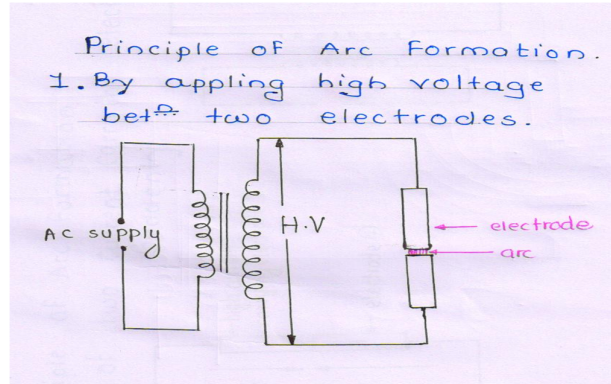 Principle of Arc Formation.
1. By appling high voltage
betn two electrodes.
AC supply
H.V
electrode
arc